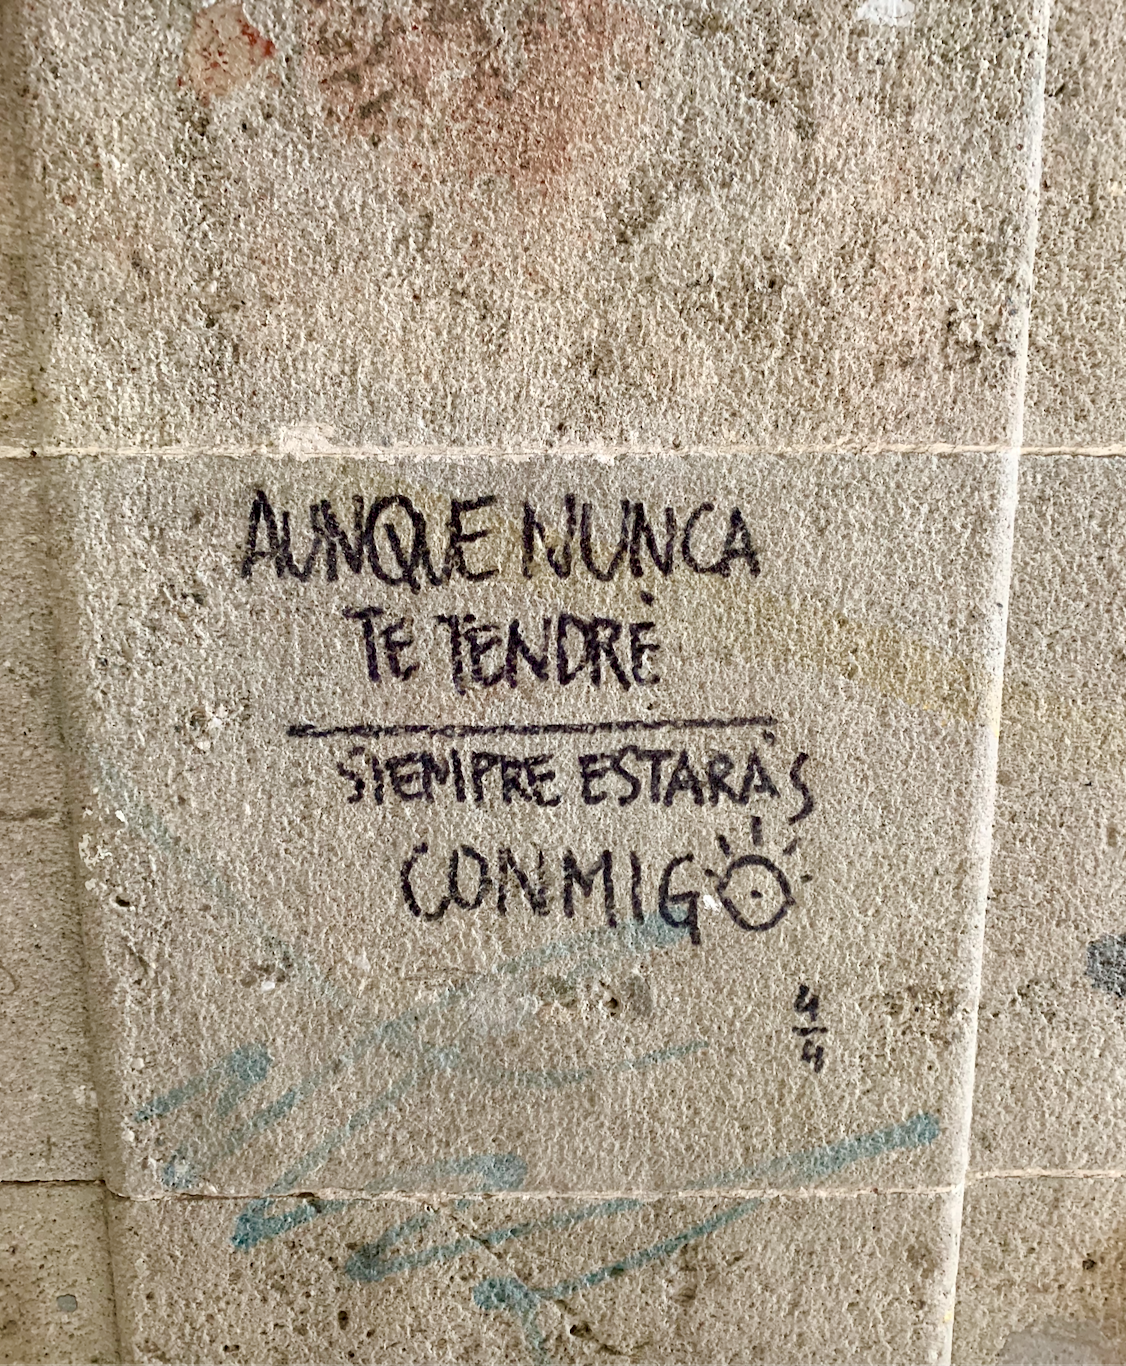 AUNQUE NUNCA
TE TENDRÉ
SIEMPRE ESTARÁS
CONMIGO
4
4